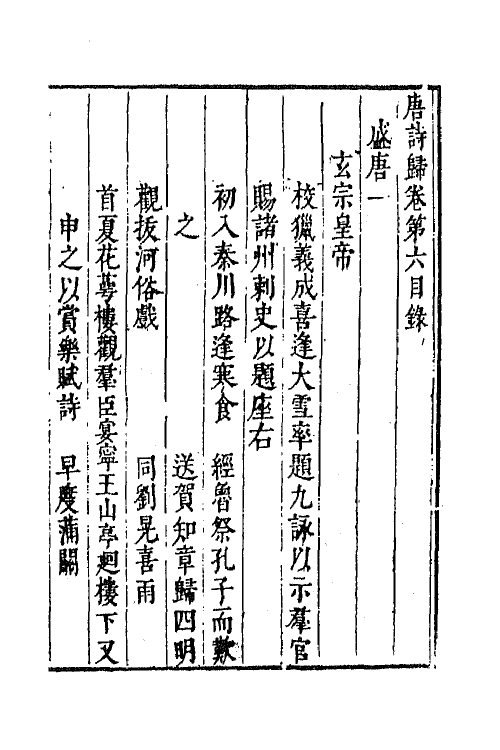 唐詩歸卷第六目錄
盛唐一
玄宗皇帝
校獵義成喜逢大雪率題九詠以示羣官
賜諸州刺史以題座右
初入秦川路逢寒食　經魯祭孔子而歎
之　送賀知章歸四明
觀拔河俗戲　同劉晃喜雨
首夏花萼樓觀羣臣宴寧王山亭廻樓下又
申之以賞樂賦詩　早度蒲關